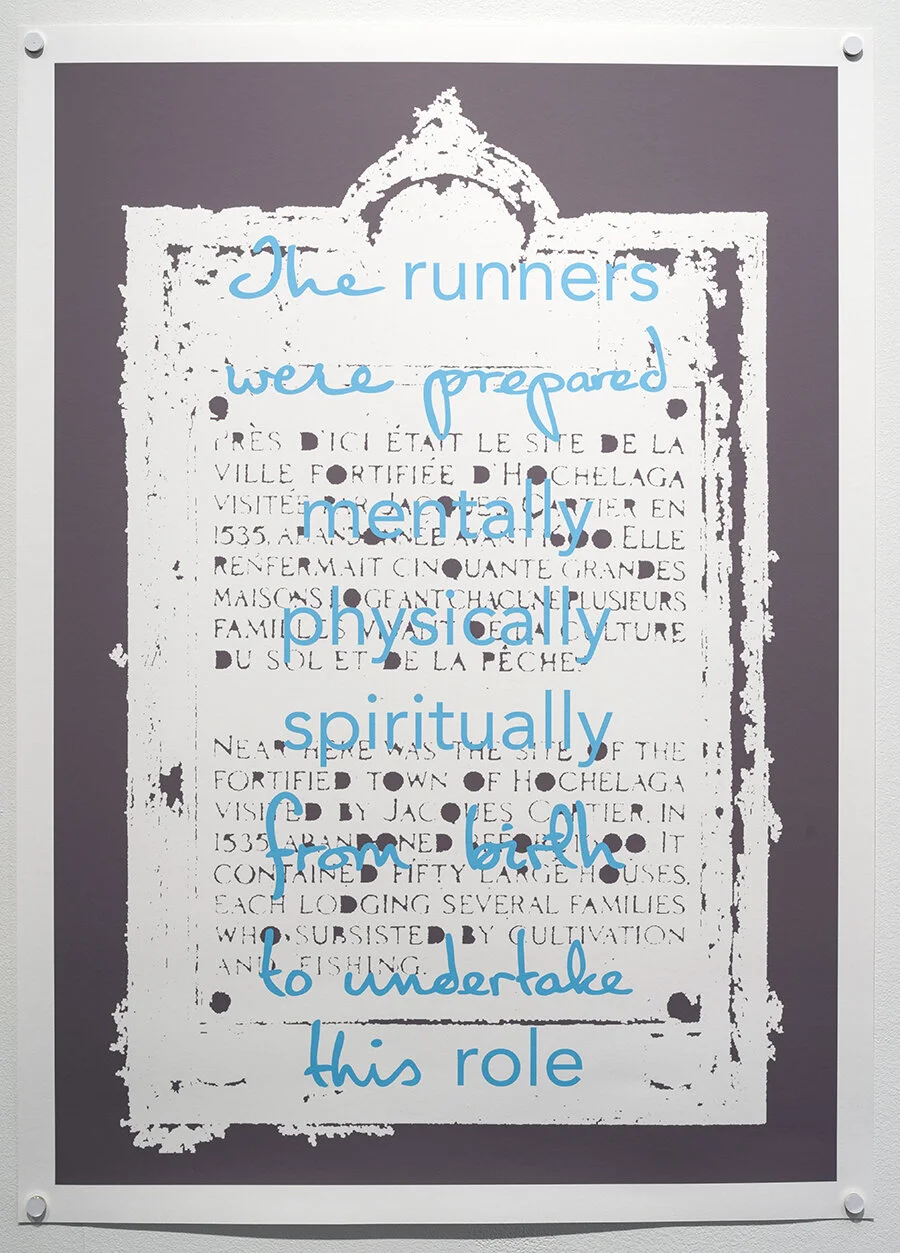 The runners
were prepared
mentally
physically
spiritually
from birth
to undertake
this role
PRÈS D'ICI ÉTAIT LE SITE DE LA
VILLE FORTIFIÉE D'HOCHELAGA
VISITÉE PAR JACQUES CARTIER EN
1535, ABANDONNÉE AVANT 1600. ELLE
RENFERMAIT CINQUANTE GRANDES
MAISONS LOGEANT CHACUNE PLUSIEURS
FAMILLES VIVANT DE LA CULTURE
DU SOL ET DE LA PÊCHE.
NEAR HERE WAS THE SITE OF THE
FORTIFIED TOWN OF HOCHELAGA
VISITED BY JACQUES CARTIER, IN
1535, ABANDONED BEFORE 1600. IT
CONTAINED FIFTY LARGE HOUSES,
EACH LODGING SEVERAL FAMILIES
WHO SUBSISTED BY CULTIVATION
AND FISHING.